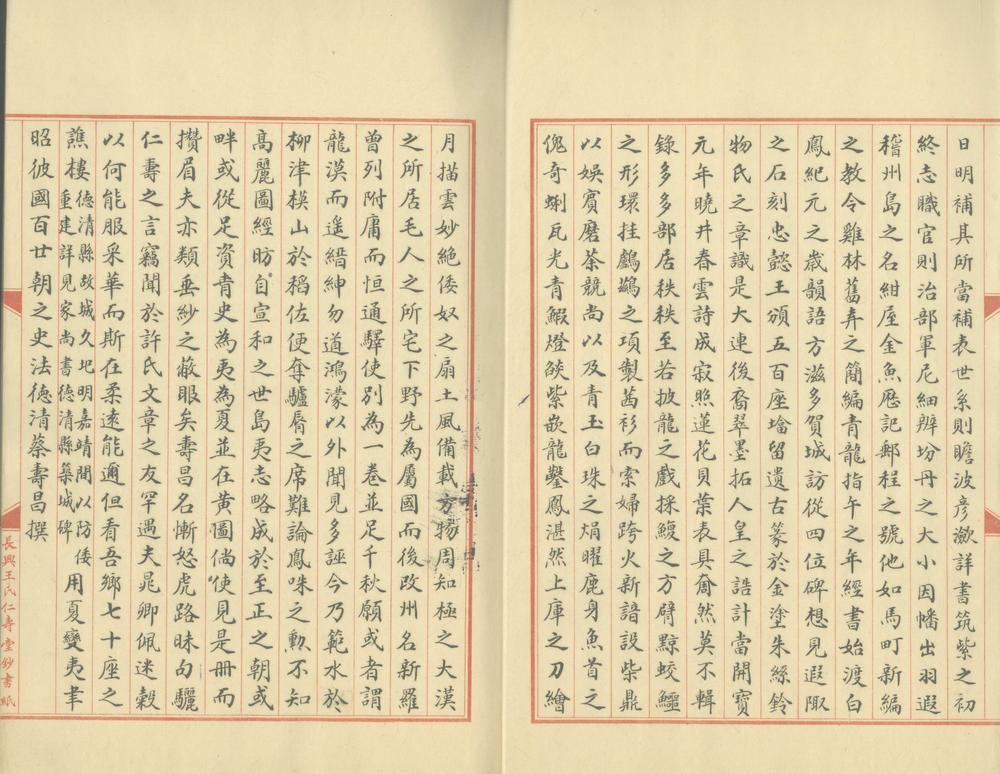 日明補其所當補表世系則瞻波彥瀲詳書筑紫之初
終志職官則治部軍尼細辨坋丹之大小因幡出羽遐
稽州島之名紺座金魚歷記郵程之號他如馬町新編
之教令雞林舊弆之簡編青龍指午之年經書始渡白
鳳紀元之歲韻語方滋多賀城訪從四位碑想見遐陬
之石刻忠懿王頒五百座墖留遺古篆於金塗朱絲鈴
物氏之章識是大連後裔翠墨拓人皇之誥計當開寶
元年曉井春雲詩成寂照蓮花貝葉表具奝然莫不輯
錄多多部居秩秩至若披龍之戲採鰒之方臂黥蛟鱷
之形環挂鸕鷀之項製茜衫而索婦跨火新諳設柴鼎
以娛賓磨茶競尚以及青玉白珠之焆曜鹿身魚首之
傀奇蜊瓦光青鰕燈燄紫嵌龍鑿鳳湛然上庫之刀繪
月描雲妙絕倭奴之扇土風備載方物周知極之大漢
之所居毛人之所宅下野先為屬國而後改州名新羅
曾列附庸而恒通驛使別為一卷並足千秋願或者謂
龍漠而遥縉紳勿道鴻濛以外聞見多誣今乃範水於
柳津模山於稻佐便奪驢脣之席難論鳳咮之勳不知
高麗圖經昉自宣和之世島夷志略成於至正之朝或
畔或從足資青史為夷為夏並在黃圖倘使見是冊而
攢眉夫亦類垂紗之蔽眼矣壽昌名慚怒虎路昧句驪
仁壽之言竊聞於許氏文章之友罕遇夫晁卿佩迷穀
以何能服采華而斯在柔遠能邇但看吾鄉七十座之
譙樓德清縣故城久圯明嘉靖間以防倭重建詳見家尚書德清縣築城碑用夏變夷聿
昭彼國百廿朝之史法德清蔡壽昌撰
長興王氏仁壽堂鈔書紙